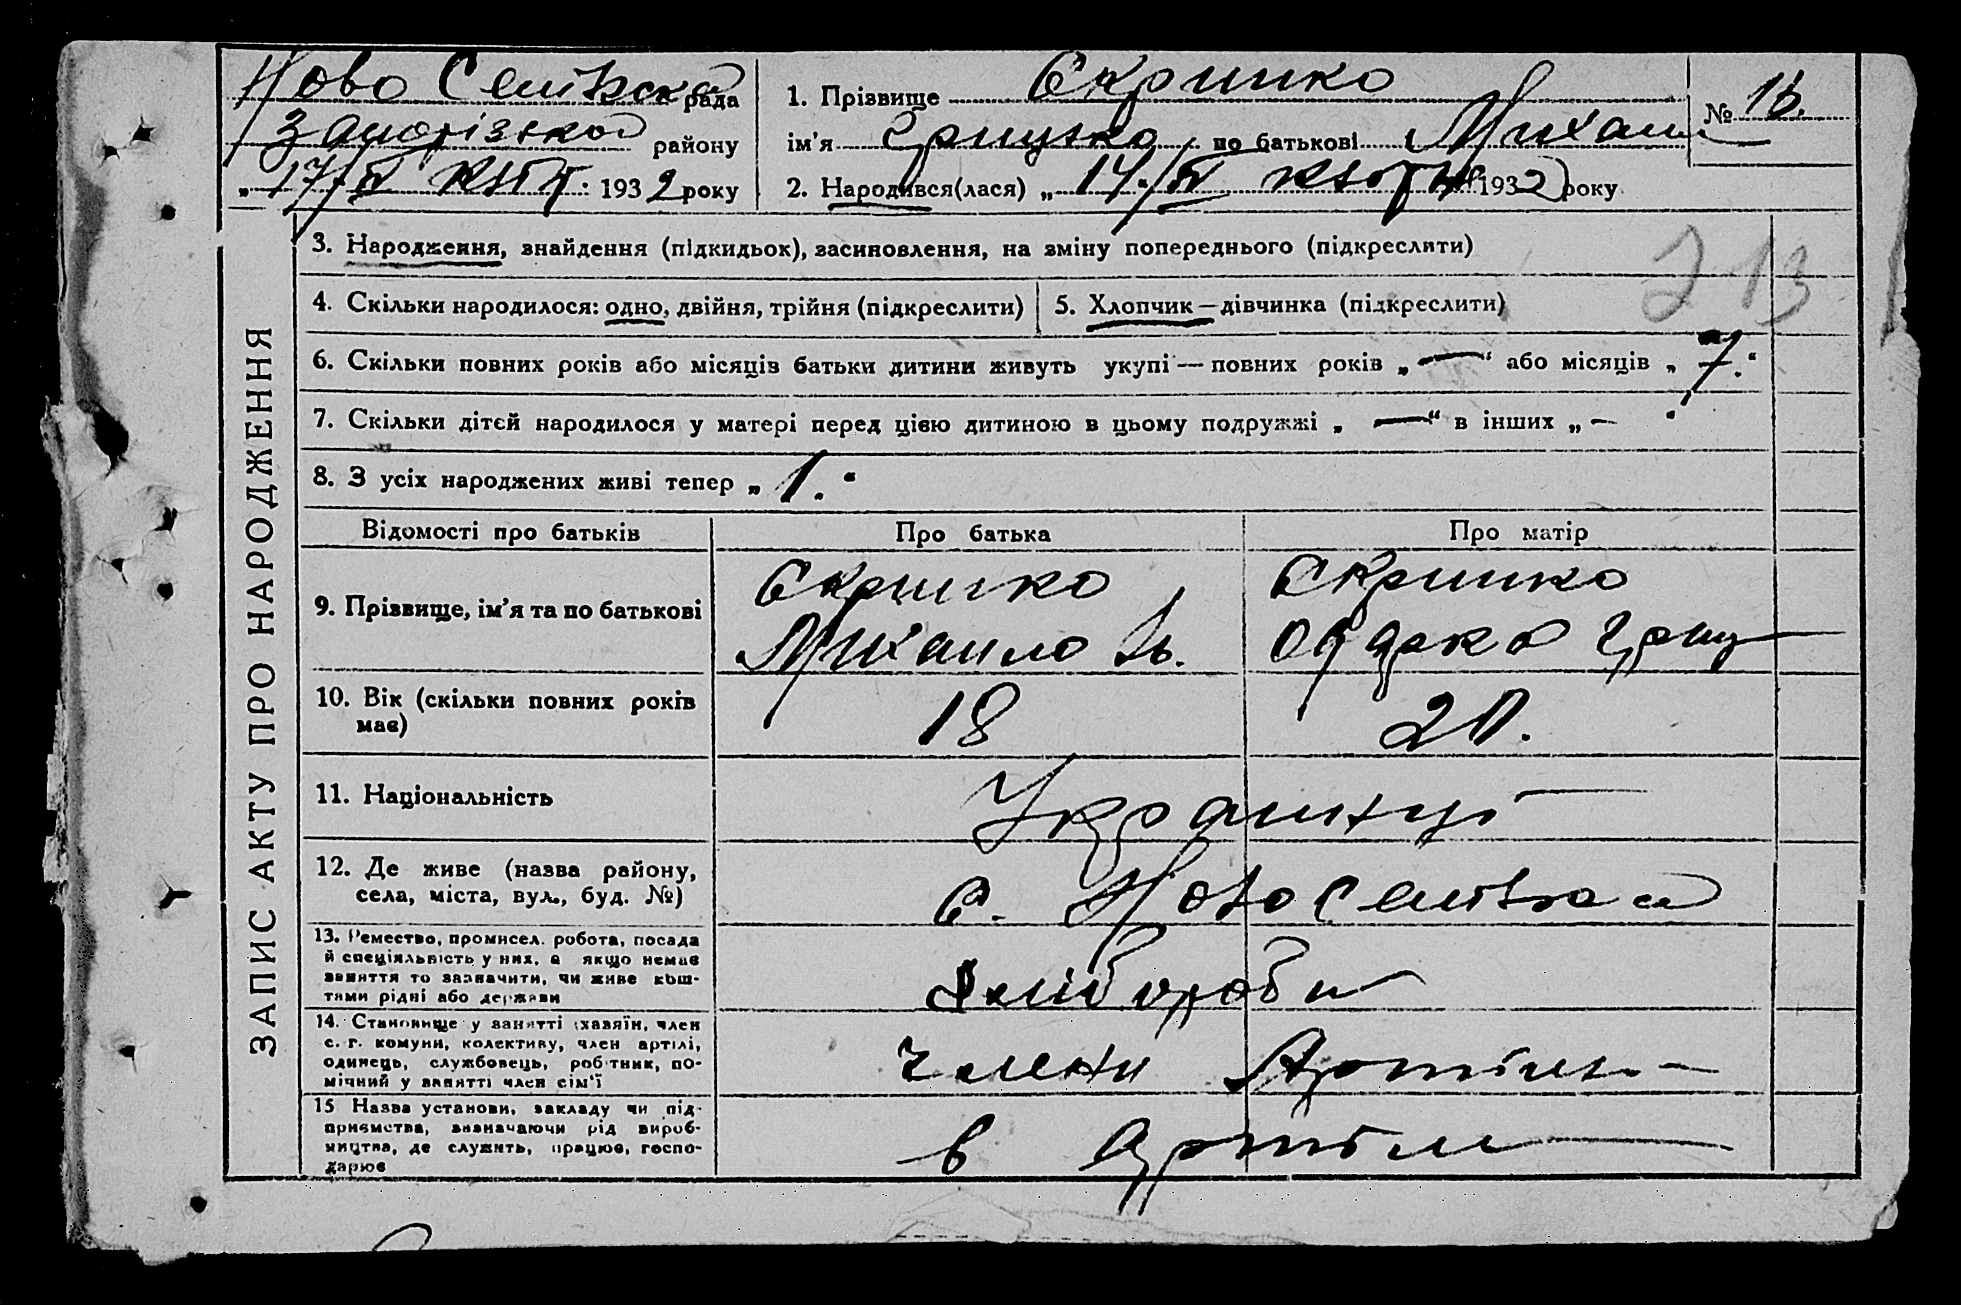 Ново Селівська рада
Запорізької району
„ 17/IV квіт. " 1932 року
1. Прізвище Скрипко
ім'я Грицько по батькові Михайл
№ 16.
2. Народився(лася) „ 14/IV квітня 1932 року
3. Народження, знайдення (підкидьок), засиновлення, на зміну попереднього (підкреслити)
213
4. Скільки народилося: одно, двійня, трійня (підкреслити)
5. Хлопчик — дівчинка (підкреслити)
6. Скільки повних років або місяців батьки дитини живуть укупі — повних років „ — “ або місяців „ 7. “
7. Скільки дітей народилося у матері перед цією дитиною в цьому подружжі „ — “ в інших „ — “
8. З усіх народжених живі тепер „ 1. “
Відомості про батьків
Про батька
Про матір
9. Прізвище, ім'я та по батькові
Скрипко
Михаило
Скрипко
Одарка Гриц
10. Вік (скільки повних років має)
18
20.
11. Національність
Українці
12. Де живе (назва району,
села, міста, вул., буд. №)
с. Новоселівка
13. Ремество, промисел. робота, посада
й спеціяльність у них, а якщо немає
заняття то зазначити, чи живе кош-
тами рідні або держави
Хлібороби
14. Становище у занятті (хазяїн, член
с.-г. комуни, колективу, член артілі,
одинець, службовець, робітник, по-
мічний у занятті член сім'ї
члени Артіли
15 Назва установи, закладу чи під-
приємства, визначаючи рід вироб-
ництва, де служить, працює, госпо-
дарює
в Артіли
ЗАПИС АКТУ ПРО НАРОДЖЕННЯ